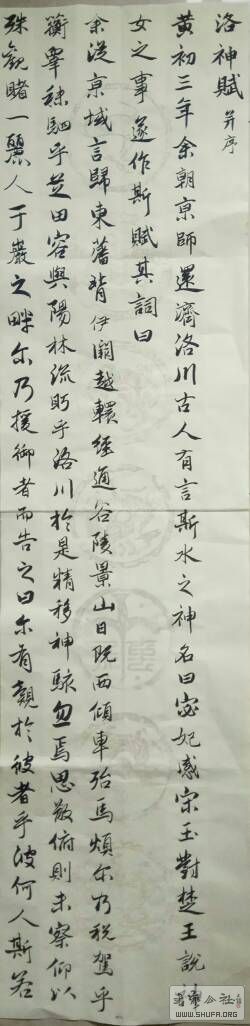 洛神賦 并序
黃初三年余朝京師還濟洛川古人有言斯水之神名曰宓妃感宋玉對楚王說神
女之事遂作斯賦其詞曰
余從京域言歸東藩背伊闕越轘經通谷陵景山日既西傾車殆馬煩尔乃税駕乎
蘅皋秣駟乎芝田容與陽林流眄乎洛川於是精移神駭忽焉思散俯則未察仰以
殊觀睹一麗人于巖之畔尔乃援御者而告之曰尔有覿於彼者乎彼何人斯若
WWW.SHUFA.ORG